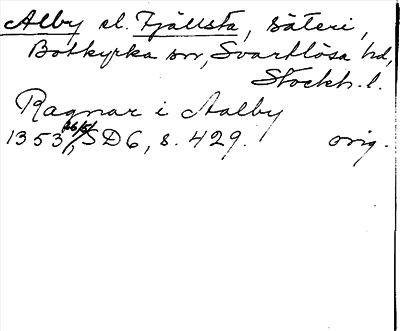 Alby el. Fjällsta, säteri,
Botkyrka sn, Svartlösa hd,
Stockh. l.
Ragnar i Aalby
1353 26/5, SD 6, s. 429. orig.